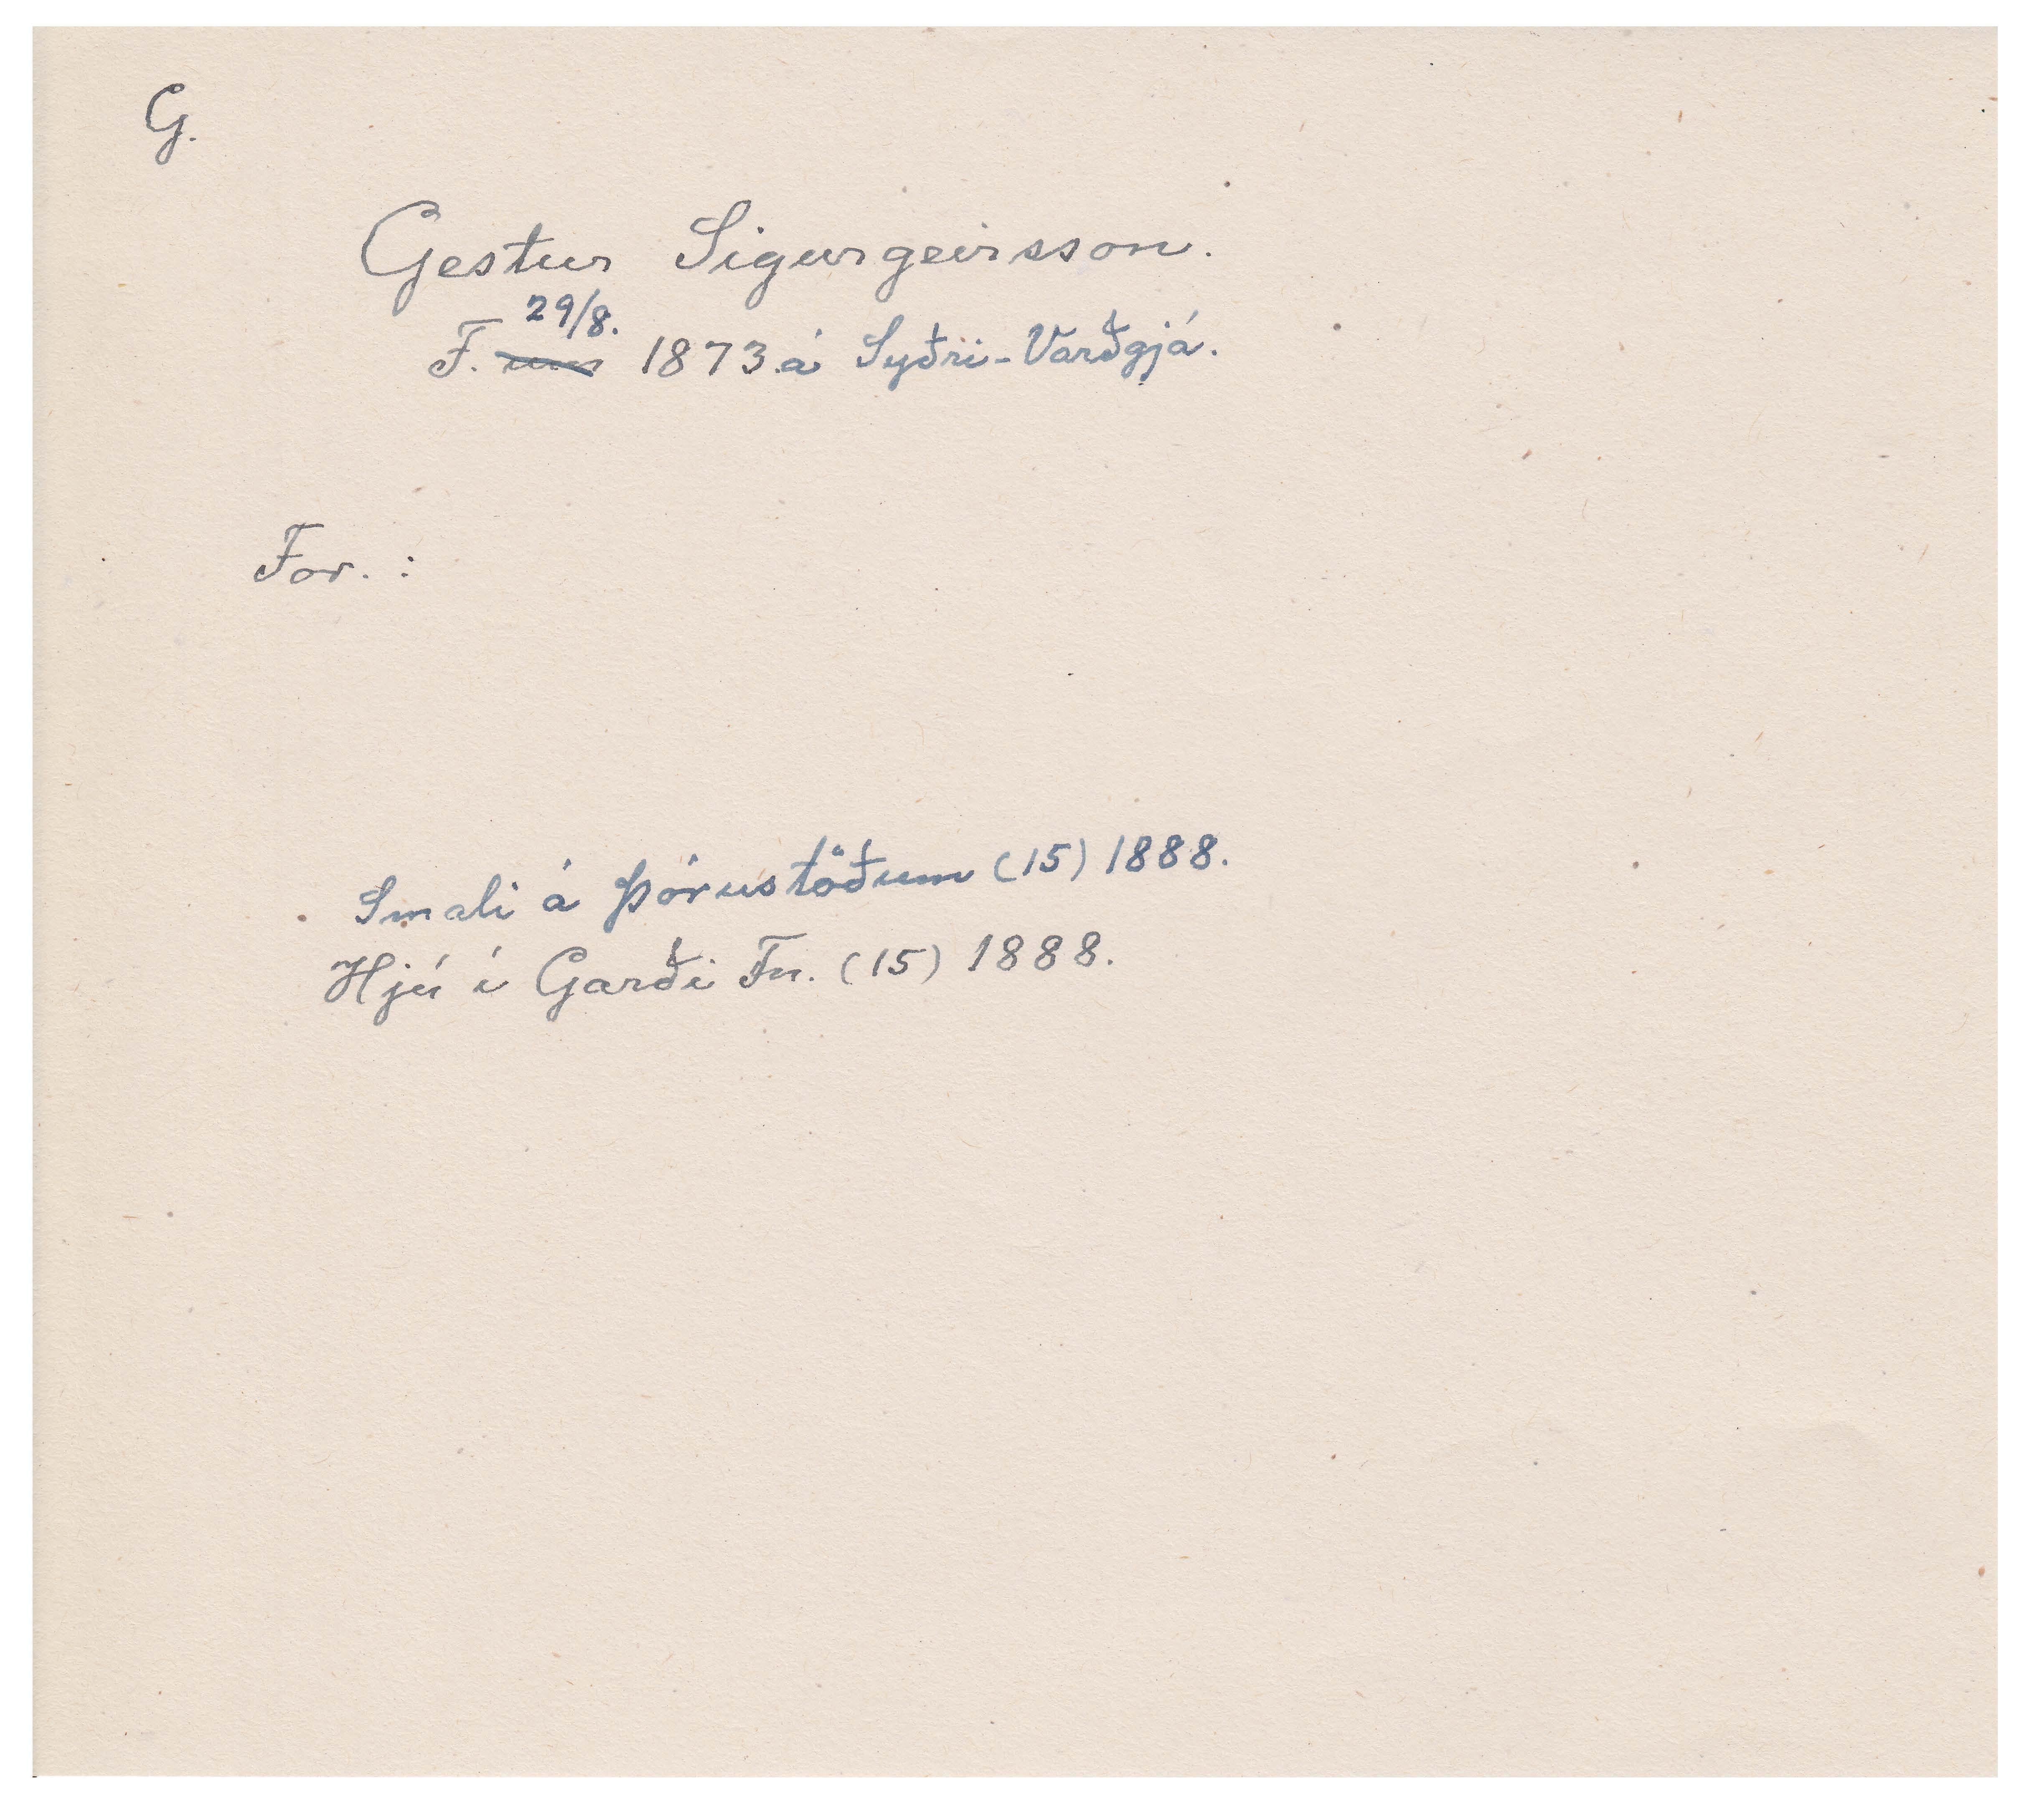 G.
Gestur Sigurgeirsson.
29/8.
F. um 1873 á Syðri-Varðgjá.
For. :
Smali á Þórustöðum (15) 1888.
Hjú í Garði Fn. (15) 1888.